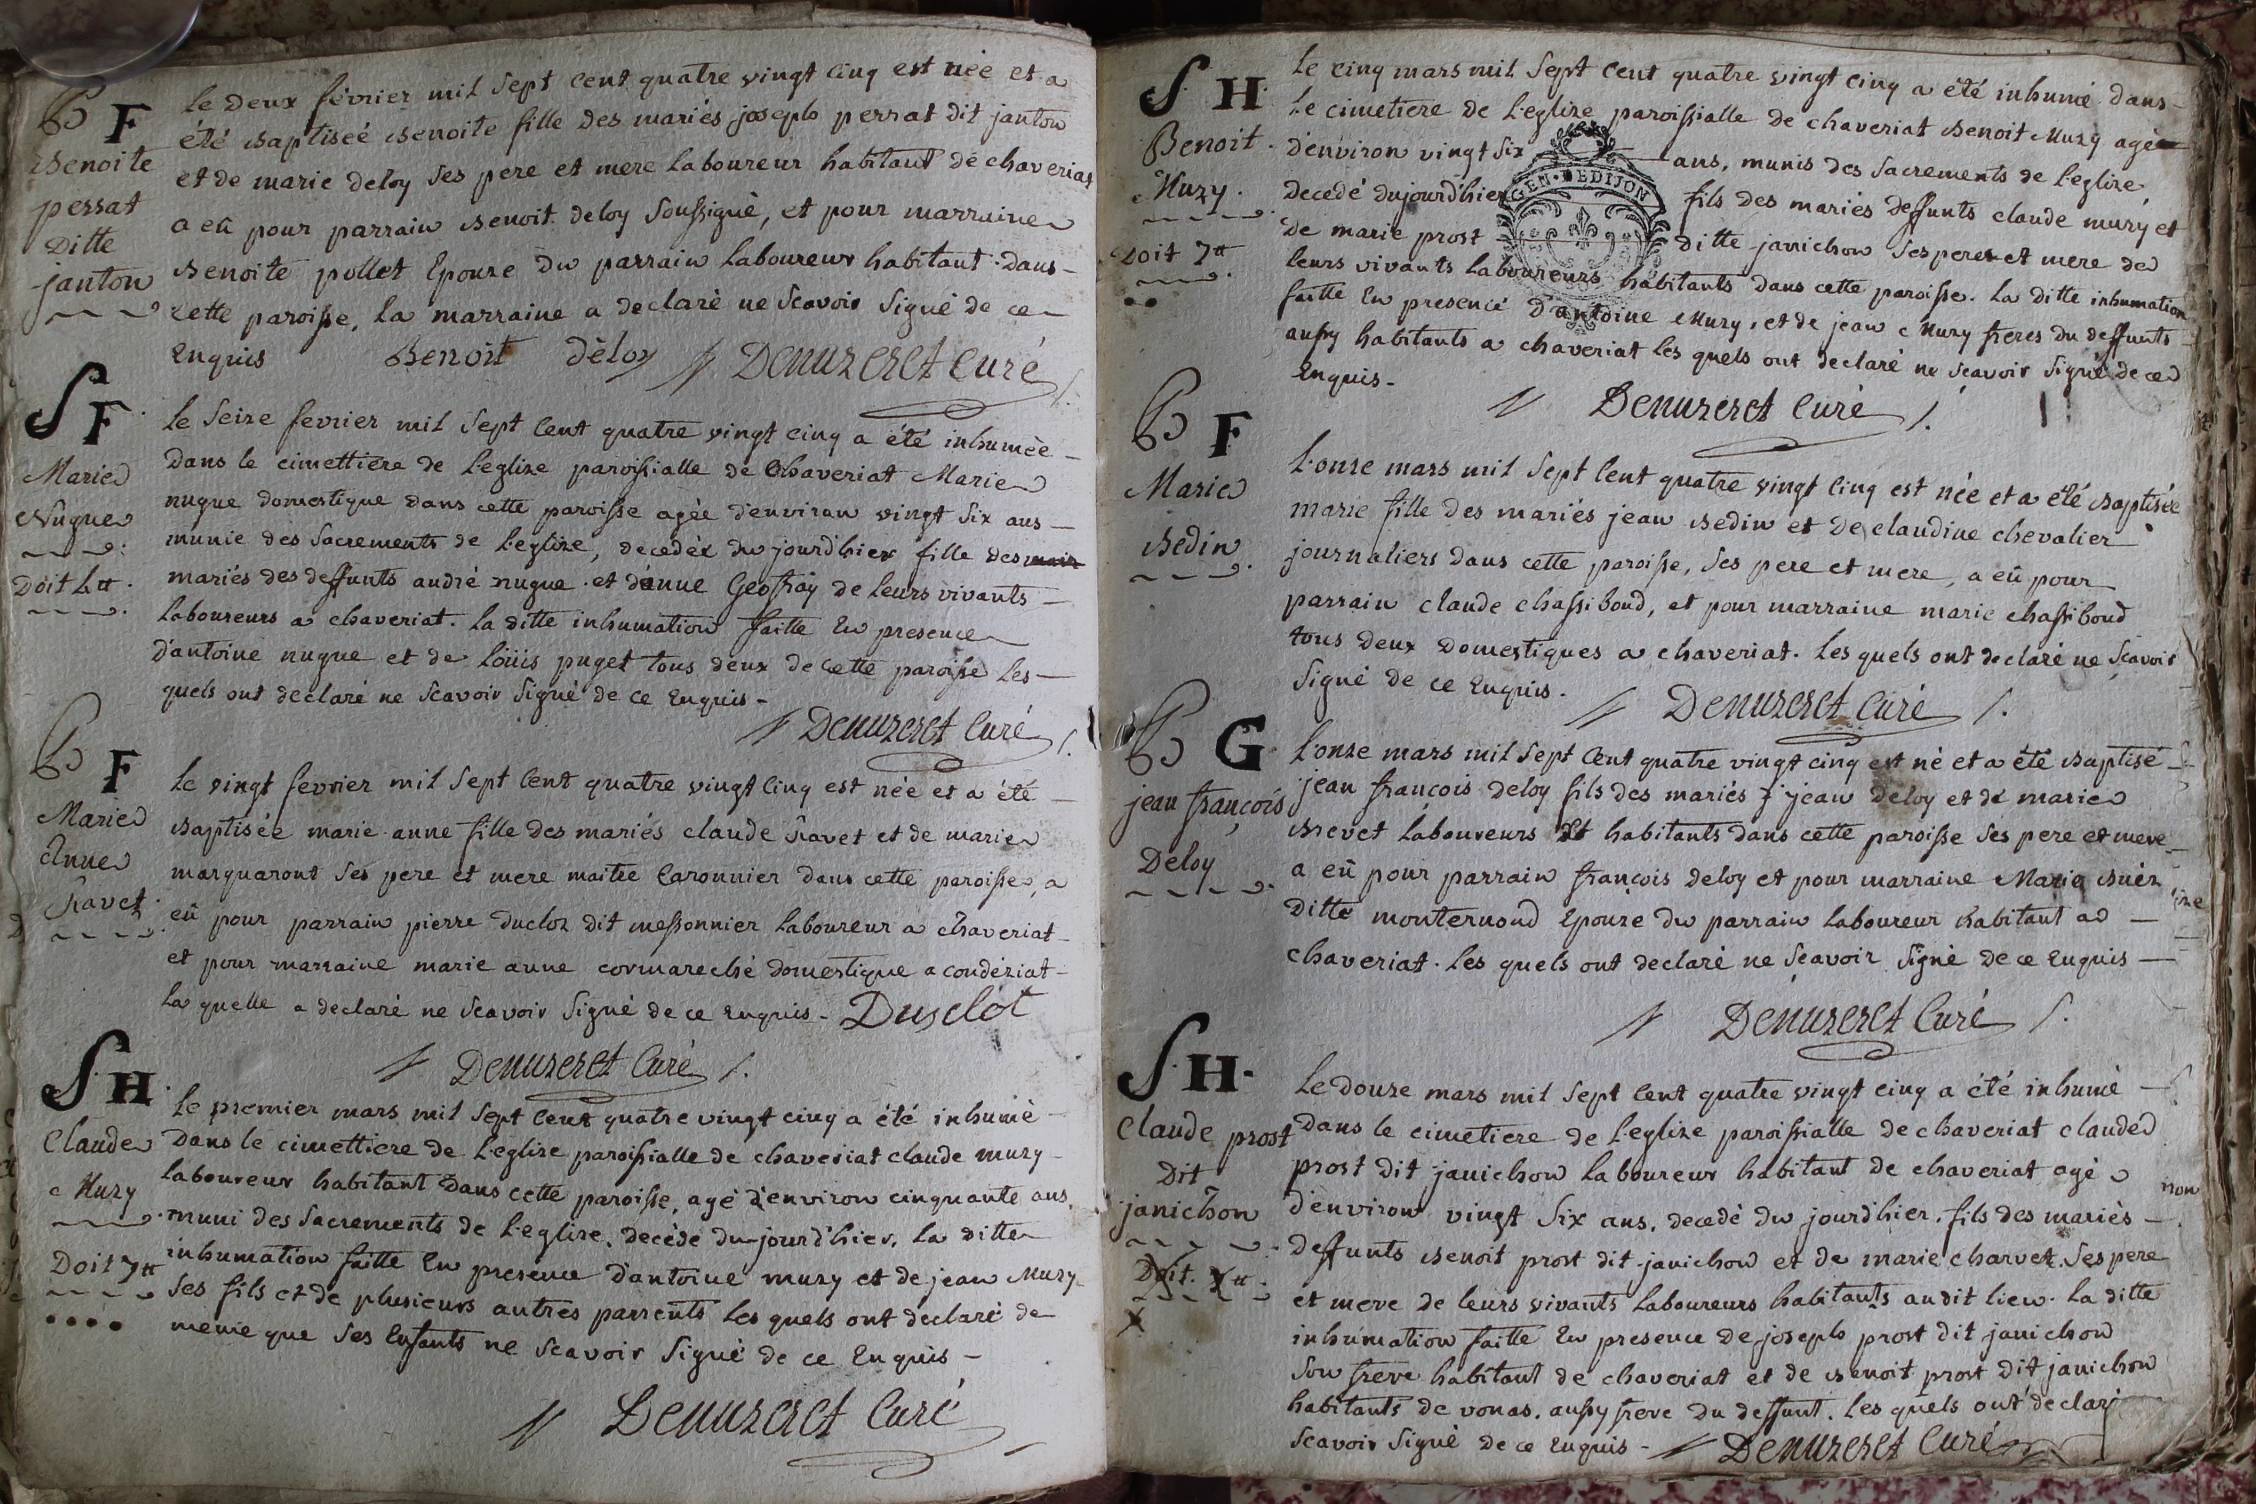 B F
Benoite
perrat
Ditte
janton
Le Deux février mil Sept Cent quatre vingt Cinq est née et a
été Baptiseé Benoite fille des mariés joseph perrat dit janton
et de marie deloy Ses pere et mere Laboureur habitant de chaveriat
a eû pour parrain Benoit deloy Soussigné, et pour marraine
Benoite pollet Epouse du parrain Laboureur habitant dans
cette paroisse, La marraine a declaré ne Scavoir Signé de ce
Enquis Benoit Déloy Denuzeret Curé
S F
Marie
Nugue
Doit
Le Seize fevrier mil Sept Cent quatre vingt cinq a été inhumée
Dans le cimettiere de L'eglize paroissialle de Chaveriat Marie
nugue domestique dans cette paroisse agée d'environ vingt Six ans
munie des Sacrements de L'eglize, decedée du jourd'hier fille des
mariés des deffunts andré nugue et d'anne Geoffray de Leurs vivants
Laboureurs a chaveriat. La ditte inhumation faitte En presence
d'antoine nugue et de Loüis puget tous deux de cette paroisse Les
quels ont declaré ne Scavoir Signé de ce Enquis -
Denuzeret Curé
B F
Marie
Anne
Ravet
Le vingt fevrier mil Sept Cent quatre vingt Cinq est née et a été
Baptisée marie anne fille des mariés claude Ravet et de marie
marquaront Ses pere et mere maitre Caronnier dans cette paroisse, a
eû pour parrain pierre Ducloz dit messonnier Laboureur a chaveriat
et pour marraine marie anne cormareché domestique a condéziat
La quelle a declaré ne Scavoir Signé de ce Enquis - Dusclôt
Denuzeret Curé
S H
Claude
Muzy
Doit 7tt
Le premier mars mil Sept Cent quatre vingt cinq a été inhumé
Dans le cimettiere de L'eglize paroissialle de chaveriat claude muzy
Laboureur habitant Dans cette paroisse, agé d'environ cinquante ans,
muni des Sacrements de L'eglize, decédé du jourd'hier, La ditte
inhumation faitte En presence d'antoine muzy et de jean Muzy
Ses fils et de plusieurs autres parrents Les quels ont declaré de
meme que Ses Enfants ne Scavoir Signé de ce Enquis -
Denuzeret Curé
S H
Benoit
Muzy
Doit 7tt
Le cinq mars mil Sept Cent quatre vingt cinq a été inhumé dans
Le cimetiere de L'eglize paroissialle de chaveriat Benoit Muzy agé
d'environ vingt Six ans, munis des Sacrements de L'eglize
GEN. DE DIJON
Decedé dujourd'hier fils des mariés deffunts claude muzy et
De marie prost ditte janichon Ses pere et mere de
Leurs vivants Laboureurs habitants dans cette paroisse. La ditte inhumation
faitte En presence d'antoine Muzy, et de jean Muzy freres du deffunts
aussy habitants a chaveriat Les quels ont declaré ne Scavoir Signé de ce
Enquis -
Denuzeret Curé
B F
Marie
Bedin
L'onze mars mil Sept Cent quatre vingt Cinq est née et a été Baptisée
marie fille des mariés jean Bedin et De claudine chevalier
journaliers dans cette paroisse, Ses pere et mere, a eû pour
parrain claude chassiboud, et pour marraine marie chassiboud
tous deux Domestiques a chaveriat. Les quels ont declaré ne Scavoir
Signé de ce Enquis.
Denuzeret Curé
B G
jean françois
Deloy
L'onze mars mil Sept Cent quatre vingt cinq est né et a été Baptisé
jean francois deloy fils des mariés jean deloy et de marie
Brevet Laboureurs Et habitants dans cette paroisse Ses pere et mere
a eû pour parrain françois deloy et pour marraine Maria
Ditte monternoud Epouze du parrain Laboureur habitant a
chaveriat. Les quels ont declaré ne Scavoir Signé de ce Enquis
Denuzeret Curé
S H
Claude prost
Dit
janichon
Doit
Le Douze mars mil Sept Cent quatre vingt cinq a été inhumé
dans le cimetiere de L'eglize paroissialle de chaveriat claude
prost dit janichon Laboureur habitant de chaveriat agé
d'environ vingt Six ans, decedé du jourd'hier, fils des mariés
deffunts Benoit prost dit janichon et de marie charvet Ses pere
et mere de leurs vivants Laboureurs habitants audit lieu. La ditte
inhumation faitte En presence de joseph prost dit janichon
Son frere habitant de chaveriat et de Benoit prost dit janichon
habitants de vonas, aussy frere du deffunt. Les quels ont declaré
non
Scavoir Signé de ce Enquis - Denuzeret Curé